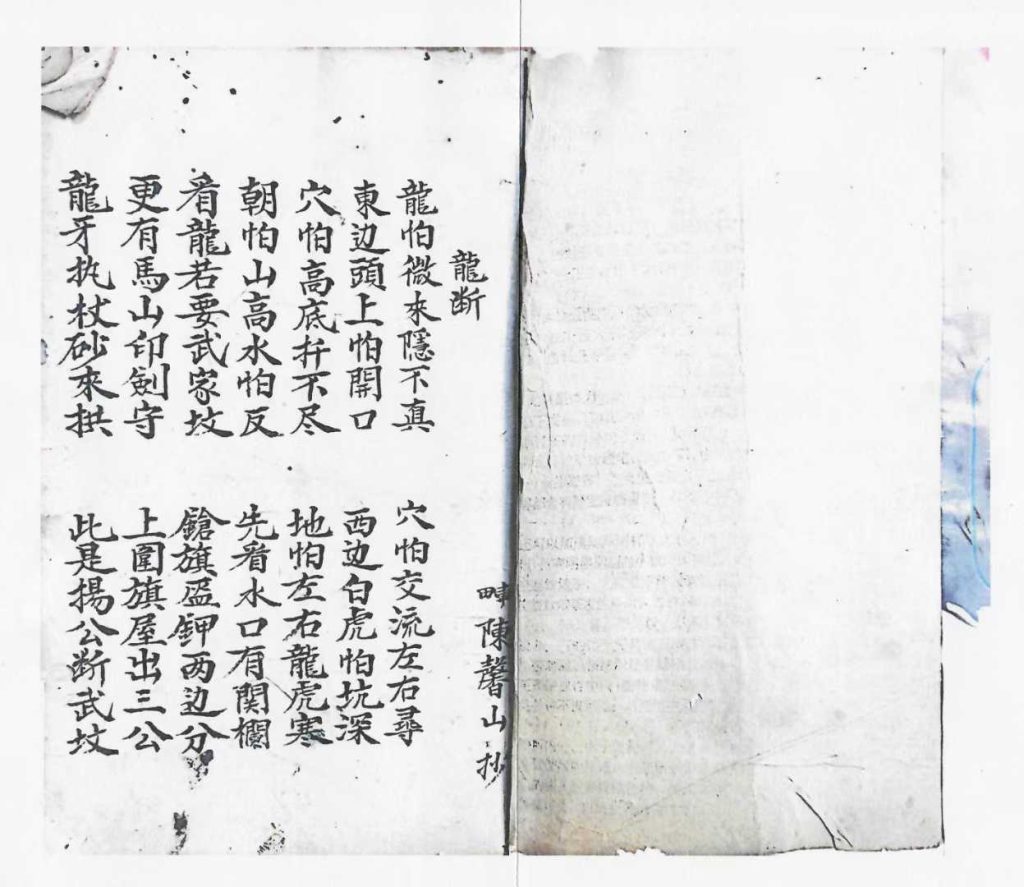 龍断
畊陳馨山抄
龍怕微來隱不真　穴怕交流左右尋
東边頭上怕開口　西边白虎怕坑深
穴怕高底扦不尽　地怕左右龍虎寒
朝怕山高水怕反　先看水口有関欄
看龍若要武家坟　鎗旗盔鉀两边分
更有馬山印劍守　上圍旗屋出三公
龍牙执杖砂來拱　此是揚公断武坟